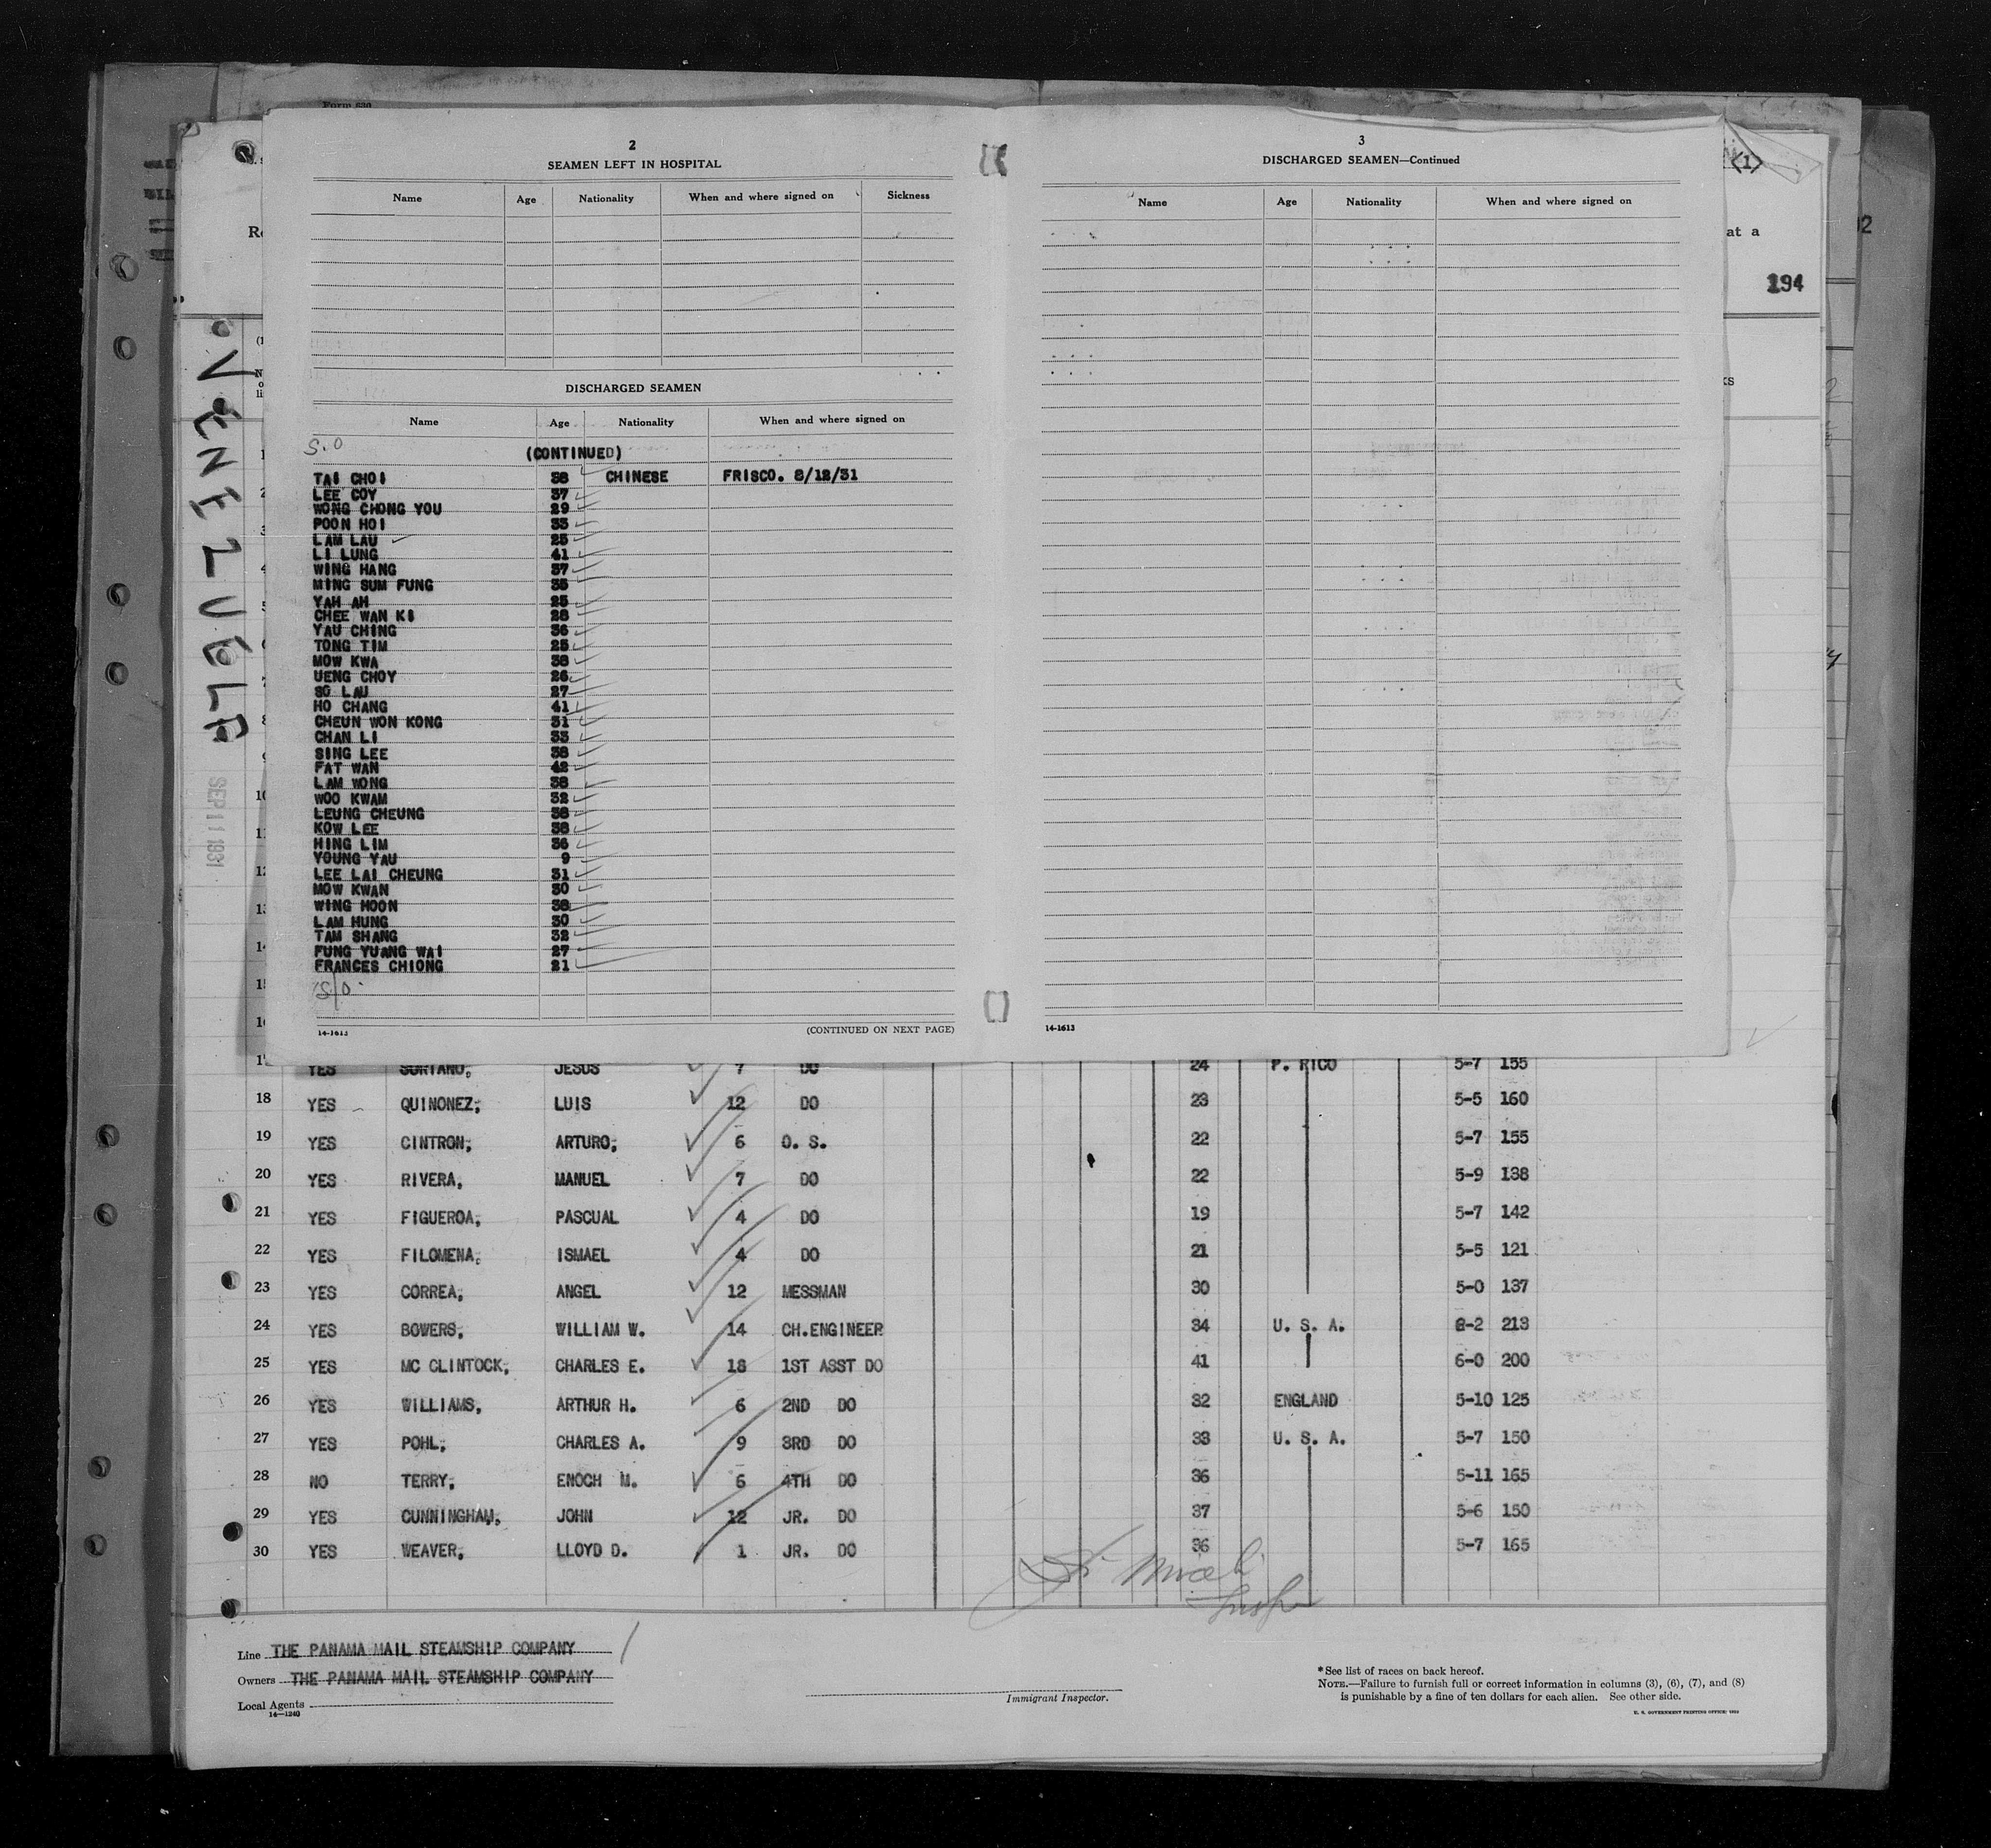 Form 680
2
SEAMEN LEFT IN HOSPITAL
Name Age Nationality When and where signed on Sickness
DISCHARGED SEAMEN
Name Age Nationality When and where signed on
S.O
(CONTINUED)
TAI CHOI 38 CHINESE FRISCO. 8/12/31
LEE COY 37
WONG CHONG YOU 29
POON HOI 33
LAM LAU 25
LI LUNG 41
WING HANG 37
MING SUM FUNG 35
YAH AH 25
CHEE WAN KI 28
YAU CHING 36
TONG TIM 25
MOW KWA 38
UENG CHOY 26
SO LAU 27
HO CHANG 41
CHEUN WON KONG 31
CHAN LI 33
SING LEE 38
FAT WAN 42
LAM WONG 38
WOO KWAM 32
LEUNG CHEUNG 38
KOW LEE 38
HING LIM 36
YOUNG YAU 9
LEE LAI CHEUNG 31
MOW KWAN 30
WING HOON 38
LAM HUNG 30
TAM SHANG 32
FUNG YUANG WAI 27
FRANCES CHIONG 21
S/O
14-1613
(CONTINUED ON NEXT PAGE)
3
DISCHARGED SEAMEN—Continued
Name Age Nationality When and where signed on
14-1613
(1)
at a
194
VENEZUELA
SEP 11 1931
YES SORIANO, JESUS 7 DO 24 P. RICO 5-7 155
18 YES QUINONEZ, LUIS 12 DO 23 5-5 160
19 YES CINTRON, ARTURO, 6 O. S. 22 5-7 155
20 YES RIVERA, MANUEL 7 DO 22 5-9 138
21 YES FIGUEROA, PASCUAL 4 DO 19 5-7 142
22 YES FILOMENA, ISMAEL 4 DO 21 5-5 121
23 YES CORREA, ANGEL 12 MESSMAN 30 5-0 137
24 YES BOWERS, WILLIAM W. 14 CH.ENGINEER 34 U. S. A. 6-2 213
25 YES MC CLINTOCK, CHARLES E. 18 1ST ASST DO 41 6-0 200
26 YES WILLIAMS, ARTHUR H. 6 2ND DO 32 ENGLAND 5-10 125
27 YES POHL, CHARLES A. 9 3RD DO 33 U. S. A. 5-7 150
28 NO TERRY, ENOCH M. 6 4TH DO 36 5-11 165
29 YES CUNNINGHAM, JOHN 12 JR. DO 37 5-6 150
30 YES WEAVER, LLOYD D. 1 JR. DO 36 5-7 165
Line THE PANAMA MAIL STEAMSHIP COMPANY
Owners THE PANAMA MAIL STEAMSHIP COMPANY
Local Agents
14—1240
Immigrant Inspector.
*See list of races on back hereof.
NOTE.—Failure to furnish full or correct information in columns (3), (6), (7), and (8)
is punishable by a fine of ten dollars for each alien. See other side.